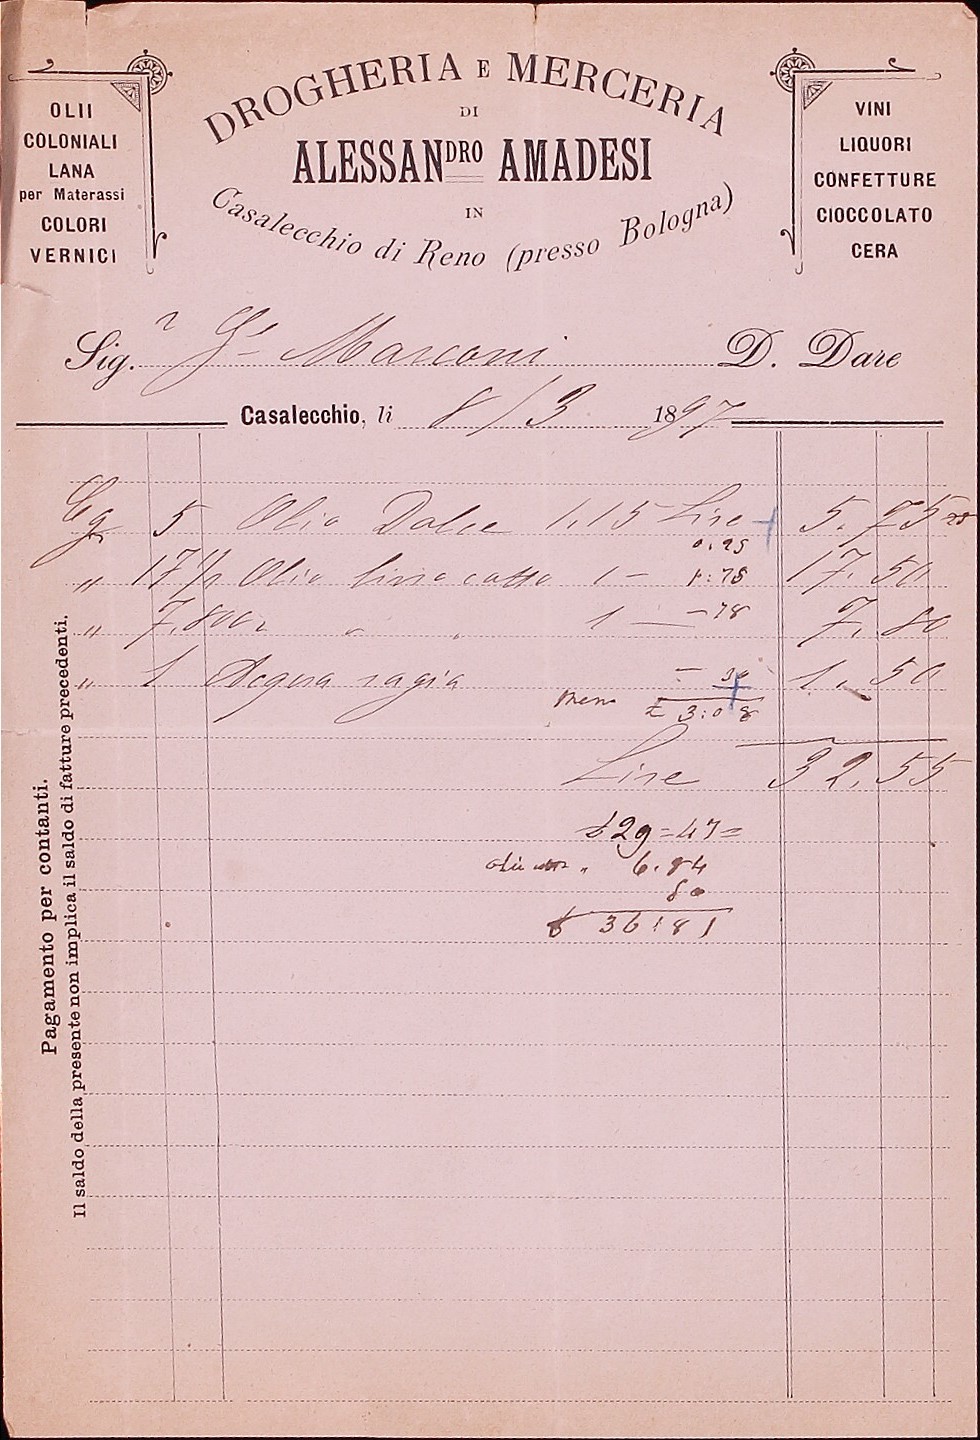 DROGHERIA E MERCERIA
DI
ALESSANDRO AMADESI
IN
Casalecchio di Reno (presso Bologna)
OLII
COLONIALI
LANA
per Materassi
COLORI
VERNICI
VINI
LIQUORI
CONFETTURE
CIOCCOLATO
CERA
Sig.r G. Marconi D. Dare
Casalecchio, li 8/3 1897
Cg 5 Olio Dolce 1.15 Lire 5.75
0.25
" 17 1/2 Olio lino cotto 1 — 1:75 17.50
" 7.800 " " 1 — 78 7.80
" 1 Acqua ragia — 30 1.50
meno £ 3:08
Lire 32.55
£ 29=47=
" 6.84
80
£ 36:81
Pagamento per contanti.
Il saldo della presente non implica il saldo di fatture precedenti.